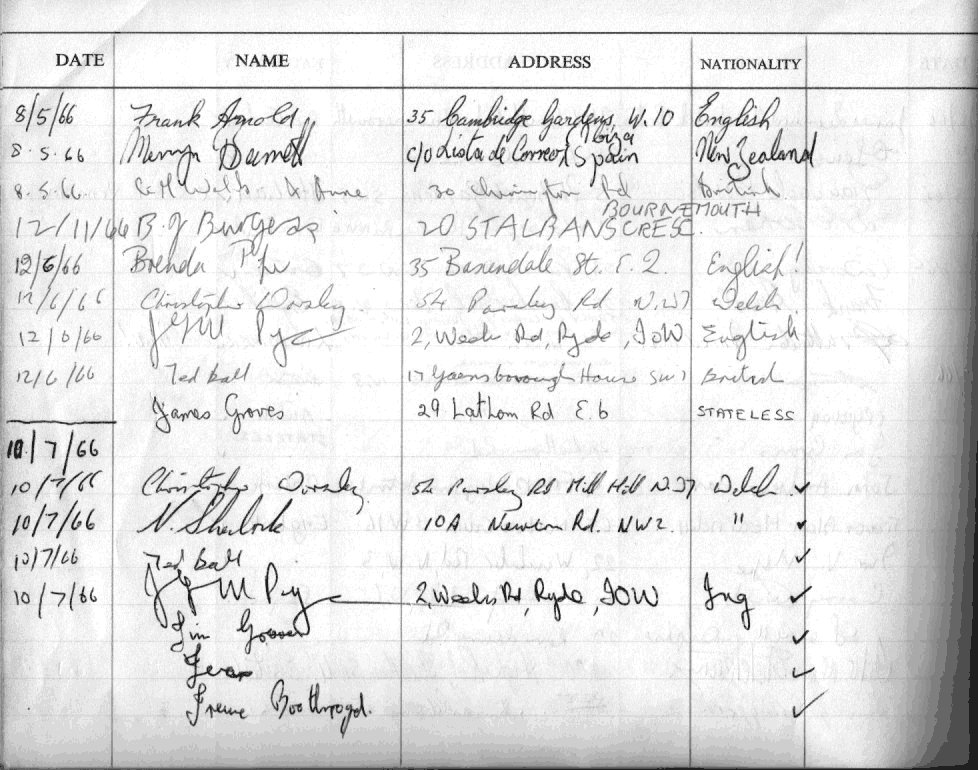 DATE NAME ADDRESS NATIONALITY
8/5/66 Frank Arnold 35 Cambridge Gardens, W.10 English
8.5.66 c/o Lista de Correos Ibiza Spain New Zealand
8.5.66 30 Rd British
12/11/66 B. J Burgess 20 ST ALBANS CRES. BOURNEMOUTH
12/6/66 Brenda 35 Baxendale St. E.2. English!
12/6/66 Christopher Worsley 54 Pursley Rd N.W7 Welsh
12/6/66 J G M Pye 2, Weeks Rd, Ryde, IOW English
12/6/66 Ted Ball 17 Gainsborough House SW1 British
James Groves 29 Latham Rd E.6 STATELESS
10/7/66
10/7/66 Christopher Worsley. 54 Pursley Rd Mill Hill N.W7 Welsh ✓
10/7/66 N. Sherlock 10A Rd. NW2. " ✓
10/7/66 Ted Ball ✓
10/7/66 J G M Pye 2, Weeks Rd, Ryde, IOW Ing ✓
Jim Groves ✓
✓
Irene Boothroyd. ✓